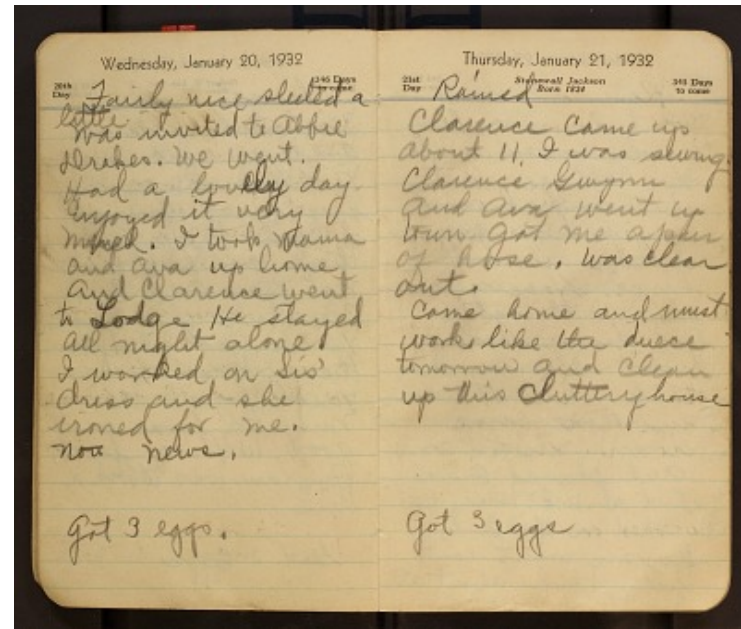 Wednesday, January 20, 1932
20th
Day
346 Days
to come
Fairly nice sleeted a
little
Was invited to Abbie
Drakes. We went.
Had a lovely day
Enjoyed it very
much. I took Mama
and Ava up home
And Clarence went
to Lodge He stayed
all night alone
I worked on Sis'
dress and she
ironed for me.
Non news.
Got 3 eggs.
Thursday, January 21, 1932
21st
Day
Stonewall Jackson
Born 1824
345 Days
to come
Rained
Clarence Came up
about 11. I was sewing.
Clarence Gwynn
and Ava went up
town got me a pair
of hose. Was clear
out.
Come home and must
work like the duece
tomorrow and Clean
up this Cluttery house
Got 3 eggs